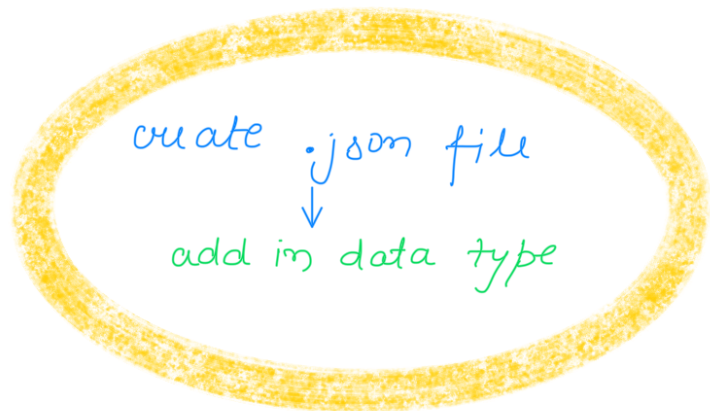 create .json file
add in data type